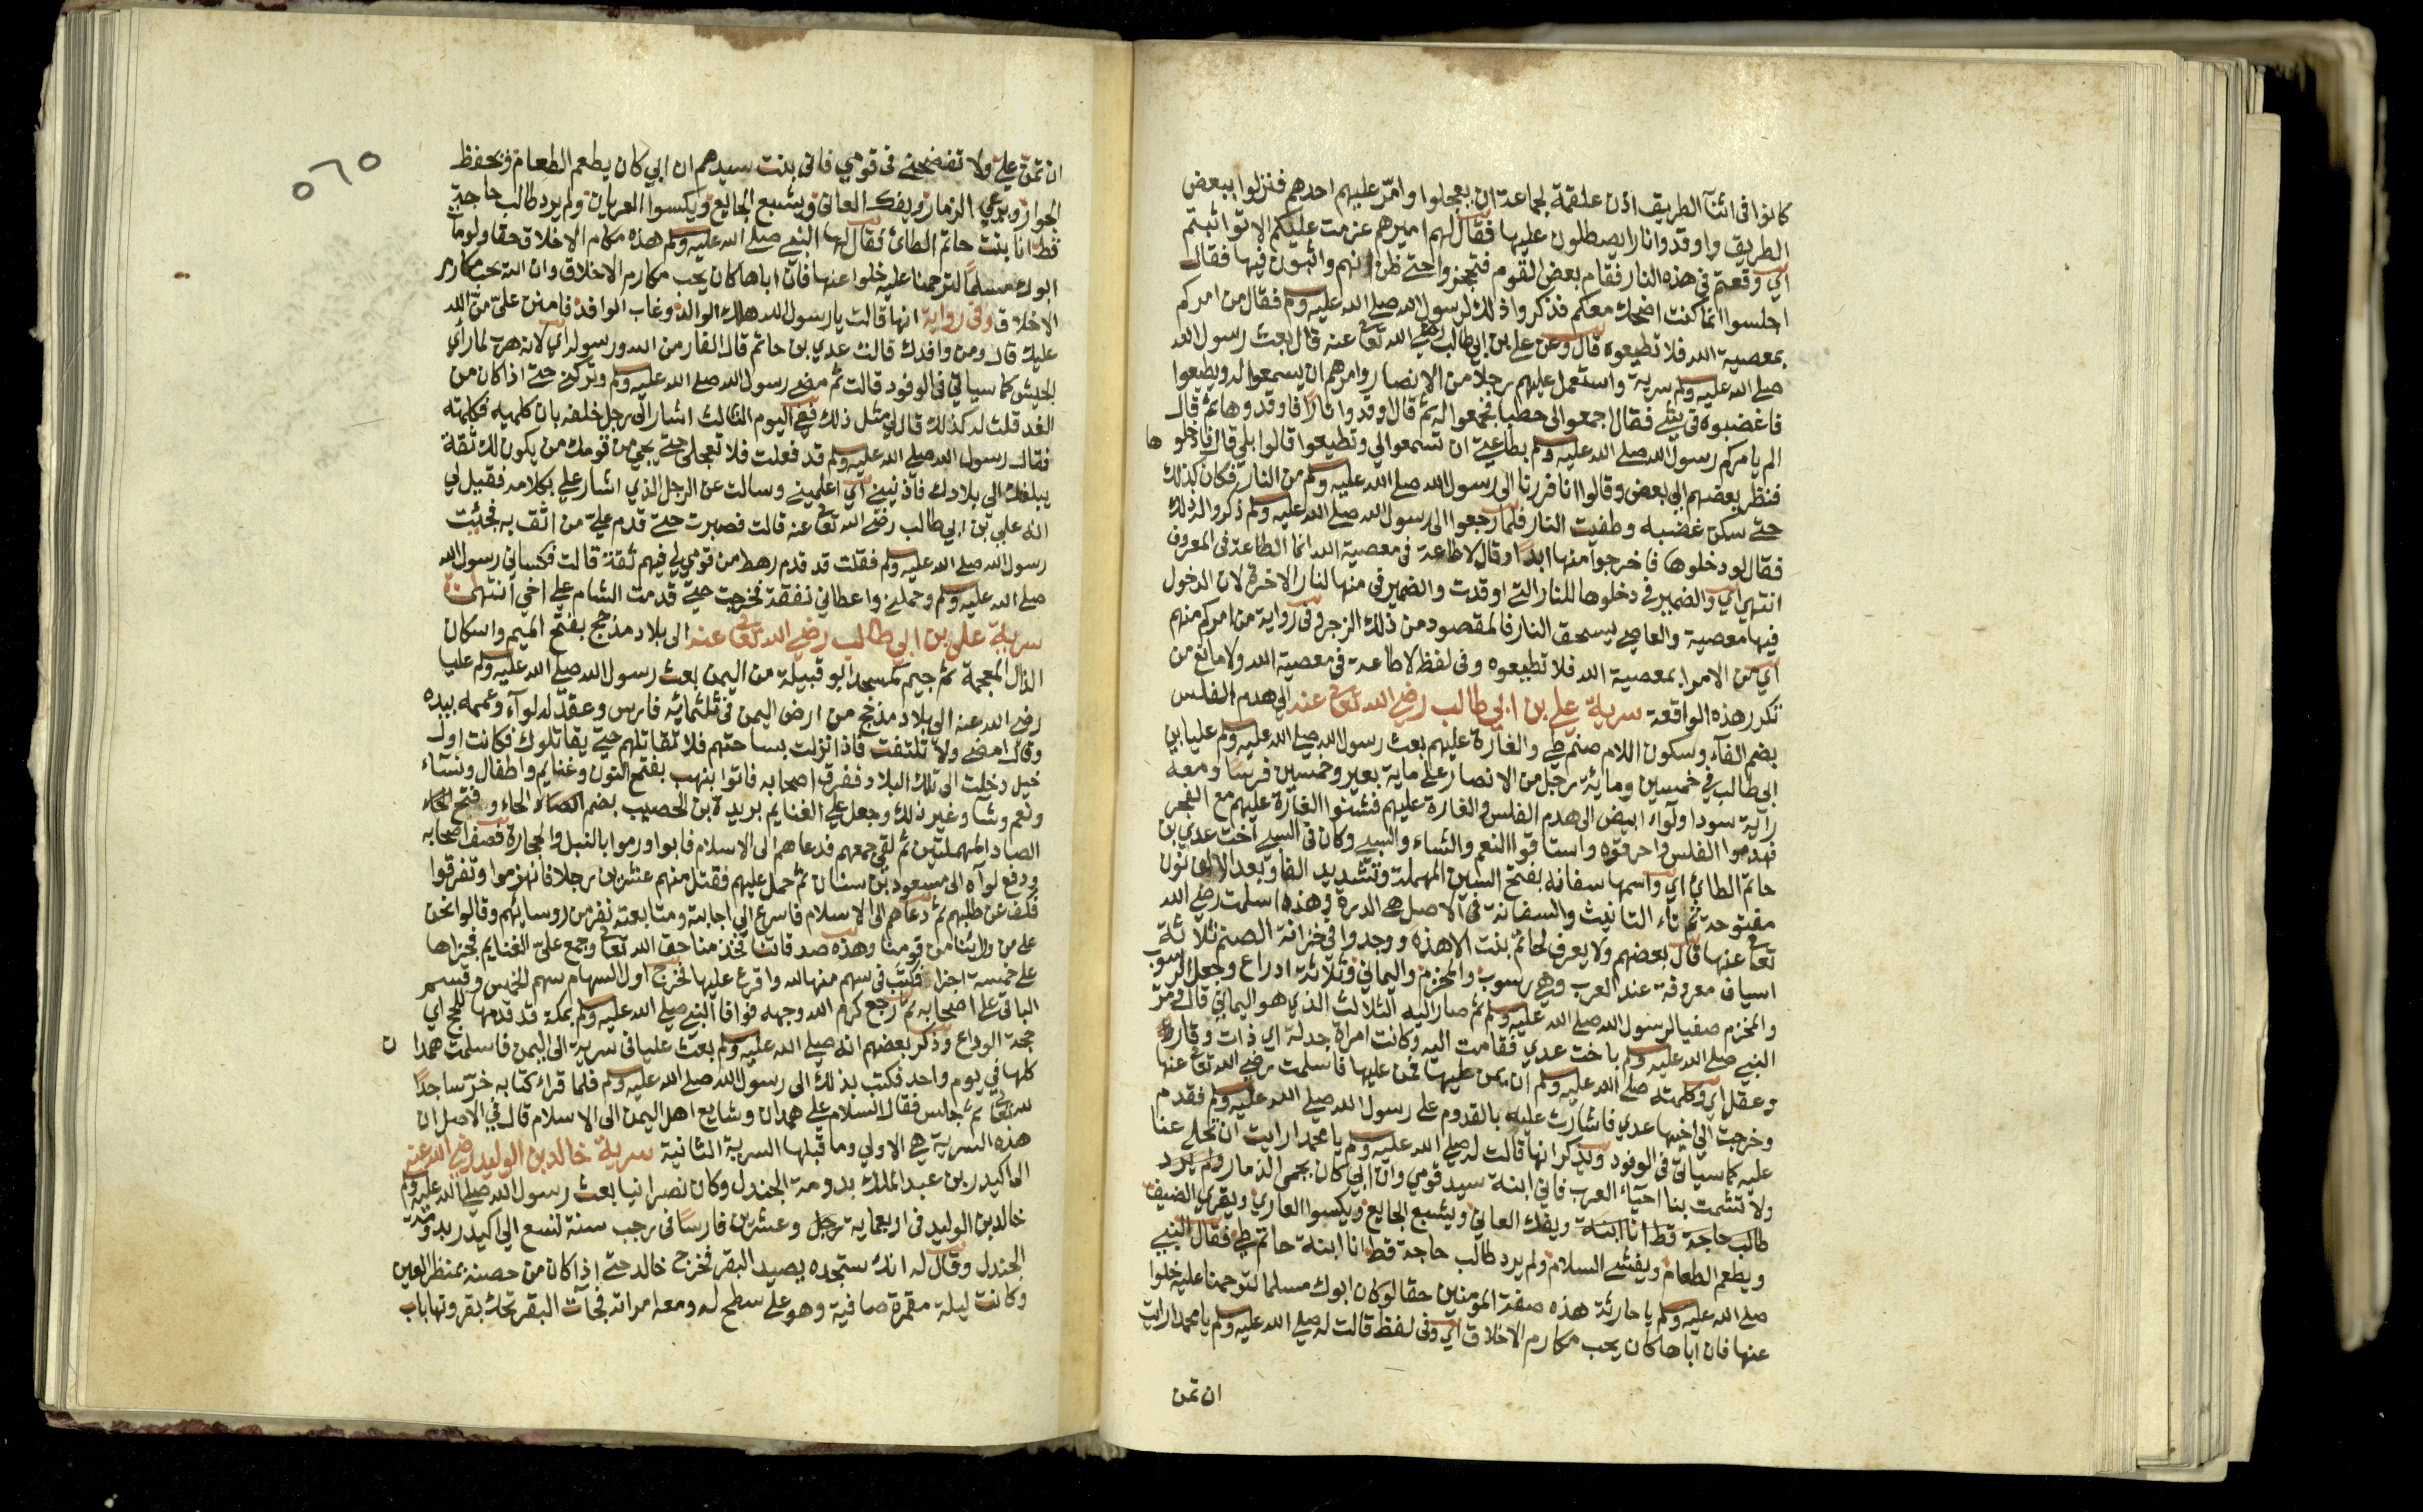 كانوا فى اثنآ الطريق اذن علقمة لجماعة ان يعجلوا وامّر عليهم احدهم فنزلوا ببعض
الطريق واوقدوا نارا يصطلون عليها فقال لهم اميرهم عزمت عليكم الا تواثبتم
اي وقعتم فى هذه النار فقام بعض القوم فتحجزوا حتى ظن انهم واثبون فيها فقال
اجلسوا انما كنت اضحك معكم فذكروا ذلك لرسول الله صلى الله عليه وسلم فقال من امركم
بمعصية الله فلا تطيعوه قال وعن على بن ابى طالب رضى الله تعالى عنه قال بعث رسول الله
صلى الله عليه وسلم سرية واستعمل عليهم رجلا من الانصار وامرهم ان يسمعوا له ويطيعوا
فاغضبوه فى شئ فقال اجمعوا لى حطبا فجمعوا له ثم قال اوقدوا نارًا فاوقدوها ثم قال
الم يامركم رسول الله صلى الله عليه وسلم بطاعتى ان تسمعوا لي وتطيعوا قالوا بلى قال فادخلوها
فنظر بعضهم الى بعض وقالوا انا فررنا الى رسول الله صلى الله عليه وسلم من النار فكان كذلك
حتى سكن غضبه وطفيت النار فلما رجعوا الى رسول الله صلى الله عليه وسلم ذكروا له ذلك
فقال لو دخلوها ما خرجوا منها ابدًا وقال لا طاعة فى معصية الله انما الطاعة فى المعروف
انتهى اي والضمير فى دخلوها للنار التى اوقدت والضمير فى منها لنار الاخرة لان الدخول
فيها معصية والعاصى يستحق النار فالمقصود من ذلك الزجر وفى رواية من امركم منهم
اي من الامرا بمعصية الله فلا تطيعوه وفى لفظ لا طاعة فى معصية الله ولا مانع من
تكرر هذه الواقعة سرية علي بن ابى طالب رضى الله تعالى عنه الى هدم الفلس
بضم الفآء وسكون اللام صنم طي والغارة عليهم بعث رسول الله صلى الله عليه وسلم عليا بن
ابى طالب في خمسين ومائة رجل من الانصار على ماية بعير وخمسين فرسًا ومعه
راية سودا ولوآء ابيض الى هدم الفلس والغارة عليهم فشنوا الغارة عليهم مع الفجر
فهدموا الفلس واحرقوه واستاقوا النعم والشاء والسبي وكان فى السبي اخت عدي بن
حاتم الطائ اي واسمها سفانه بفتح السين المهملة وتشديد الفاء وبعد الالف نون
مفتوحة ثم تاء التانيث والسفانة فى الاصل هى الدرة وهذه اسلمت رضى الله
تعالى عنها قال بعضهم ولا يعرف لحاتم بنت الا هذه ووجدوا فى خزانة الصنم ثلاثة
اسياف معروفة عند العرب وهى رسوب والمخزم واليماني وثلاثة ادراع وجعل الرسوب
والمخزم صفيا لرسول الله صلى الله عليه وسلم ثم صار اليه الثالث الذي هو اليماني قال ومرّ
النبى صلى الله عليه وسلم باخت عدي فقامت اليه وكانت امراة جدلة اي ذات وقار
وعقل اي وكلمته صلى الله عليه وسلم ان يمن عليها فمن عليها فاسلمت رضى الله تعالى عنها
وخرجت الى اخيها عدي فاشارت عليه بالقدوم على رسول الله صلى الله عليه وسلم فقدم
عليه كما سياتى فى الوفود ويذكر انها قالت له صلى الله عليه وسلم يا محمد ارايت ان تخلى عنا
ولا تشمت بنا احيآء العرب فاني ابنة سيد قومي وان ابي كان يحمى الذمار ولم يرد
طالب حاجة قط انا ابنة ويفك العاني ويشبع الجايع ويكسوا العاري ويقري الضيف
ويطعم الطعام ويفشى السلام ولم يرد طالب حاجة قط انا ابنة حاتم طي فقال النبى
صلى الله عليه وسلم يا جارية هذه صفة المومنين حقا لو كان ابوك مسلما لترحمنا عليه خلوا
عنها فان اباها كان يحب مكارم الاخلاق اي وفى لفظ قالت له صلى الله عليه وسلم يا محمد ارايت
ان تمن
٥٦٥
ان تمن عليّ ولا تفضحنى فى قومي فانى بنت سيدهم ان ابي كان يطعم الطعام ويحفظ
الجوار ويرعي الذمار ويفك العانى ويشبع الجايع ويكسوا العريان ولم يرد طالب حاجة
قط انا بنت حاتم الطائ فقال لها النبى صلى الله عليه وسلم هذه مكارم الاخلاق حقا ولو ما
ابوك مسلمًا لترحمنا عليه خلوا عنها فان اباها كان يحب مكارم الاخلاق وان الله يحب مكارم
الاخلاق وفى رواية انها قالت يا رسول الله هلك الوالد وغاب الوافد فامنن علىّ منّ الله
عليك قال ومن وافدك قالت عدي بن حاتم قال الفار من الله ورسوله اي لانه هرب لما رأي
الجيش كما سياتي فى الوفود قالت ثم مضى رسول الله صلى الله عليه وسلم وتركنى حتى اذا كان من
الغد قلت له كذلك قال لى مثل ذلك ففى اليوم الثالث اشار الى رجل خلفه بان كلميه فكلمته
فقال رسول الله صلى الله عليه وسلم قد فعلت فلا تعجلى حتى يجي من قومك من يكون لك ثقة
يبلغك الى بلادك فاذنينى اي اعلمينى وسالت عن الرجل الذي اشار علي بكلامه فقيل لي
انه علي بن ابي طالب رضى الله تعالى عنه قالت فصبرت حتى قدم علي من اثق به فجئت
رسول الله صلى الله عليه وسلم فقلت قد قدم رهط من قومي لي فيهم ثقة قالت فكسانى رسول الله
صلى الله عليه وسلم وحملنى واعطاني نفقة فخرجت حتى قدمت الشام على اخي انتهى
سرية علي بن ابي طالب رضى الله تعالى عنه الى بلاد مذحج بفتح الميم واسكان
الذال المعجمة ثم جيم كمسجد ابو قبيلة من اليمن بعث رسول الله صلى الله عليه وسلم عليا
رضى الله عنه الى بلاد مذحج من ارض اليمن فى ثلثمائة فارس وعقد له لوآء وعممه بيده
وقال امضى ولا تلتفت فاذا نزلت بساحتهم فلا تقاتلهم حتى يقاتلوك فكانت اول
خيل دخلت الى تلك البلاد ففرق اصحابه فاتوا بنهب بفتح النون وغنايم واطفال ونسآء
ونعم وشا وغير ذلك وجعل على الغنايم بريدة بن الحصيب بضم الحاء وفتح
الصاد المهملتين ثم لقى جمعهم فدعاهم الى الاسلام فابوا ورموا بالنبل والحجارة فصف اصحابه
ودفع لوآه الى مسعود بن سنان ثم حمل عليهم فقتل منهم عشرين رجلا فانهزموا وتفرقوا
فكف عن طلبهم ثم دعاهم الى الاسلام فاسرع الى اجابته ومتابعته نفر من روسايهم وقالوا نحن
على من ورائنا من قومنا وهذه صدقاتنا فخذ منها حق الله تعالى وجمع علىّ الغنايم فجزاها
على خمسة اجزا فكتب فى سهم منها لله واقرع عليها فخرج اول السهام سهم الخمس وقسم
الباقى على اصحابه ثم رجع كرم الله وجهه فوافا النبى صلى الله عليه وسلم بمكة قد قدمها للحج اي
حجة الوداع وذكر بعضهم انه صلى الله عليه وسلم بعث عليا فى سرية الى اليمن فاسلمت همدان
كلها في يوم واحد فكتب بذلك الى رسول الله صلى الله عليه وسلم فلما قراء كتابه خرّ ساجدًا
لله تعالى ثم جلس فقال السلام على همدان وشايع اهل اليمن الى الاسلام قال في الاصل ان
هذه السرية هى الاولي وما قبلها السرية الثانية سرية خالد بن الوليد رضى الله عنه
الى اكيدر بن عبد الملك بدومة الجندل وكان نصرانيا بعث رسول الله صلى الله عليه وسلم
خالد بن الوليد فى اربعماية رجل وعشرين فارسًا فى رجب سنة تسع الى اكيدر بدومة
الجندل وقال له انك ستجده يصيد البقر فخرج خالد حتى اذا كان من حصنه بمنظر العين
وكانت ليلة مقمرة صافية وهو على سطح له ومعه امراته فجآت البقر تحك بقرونها باب